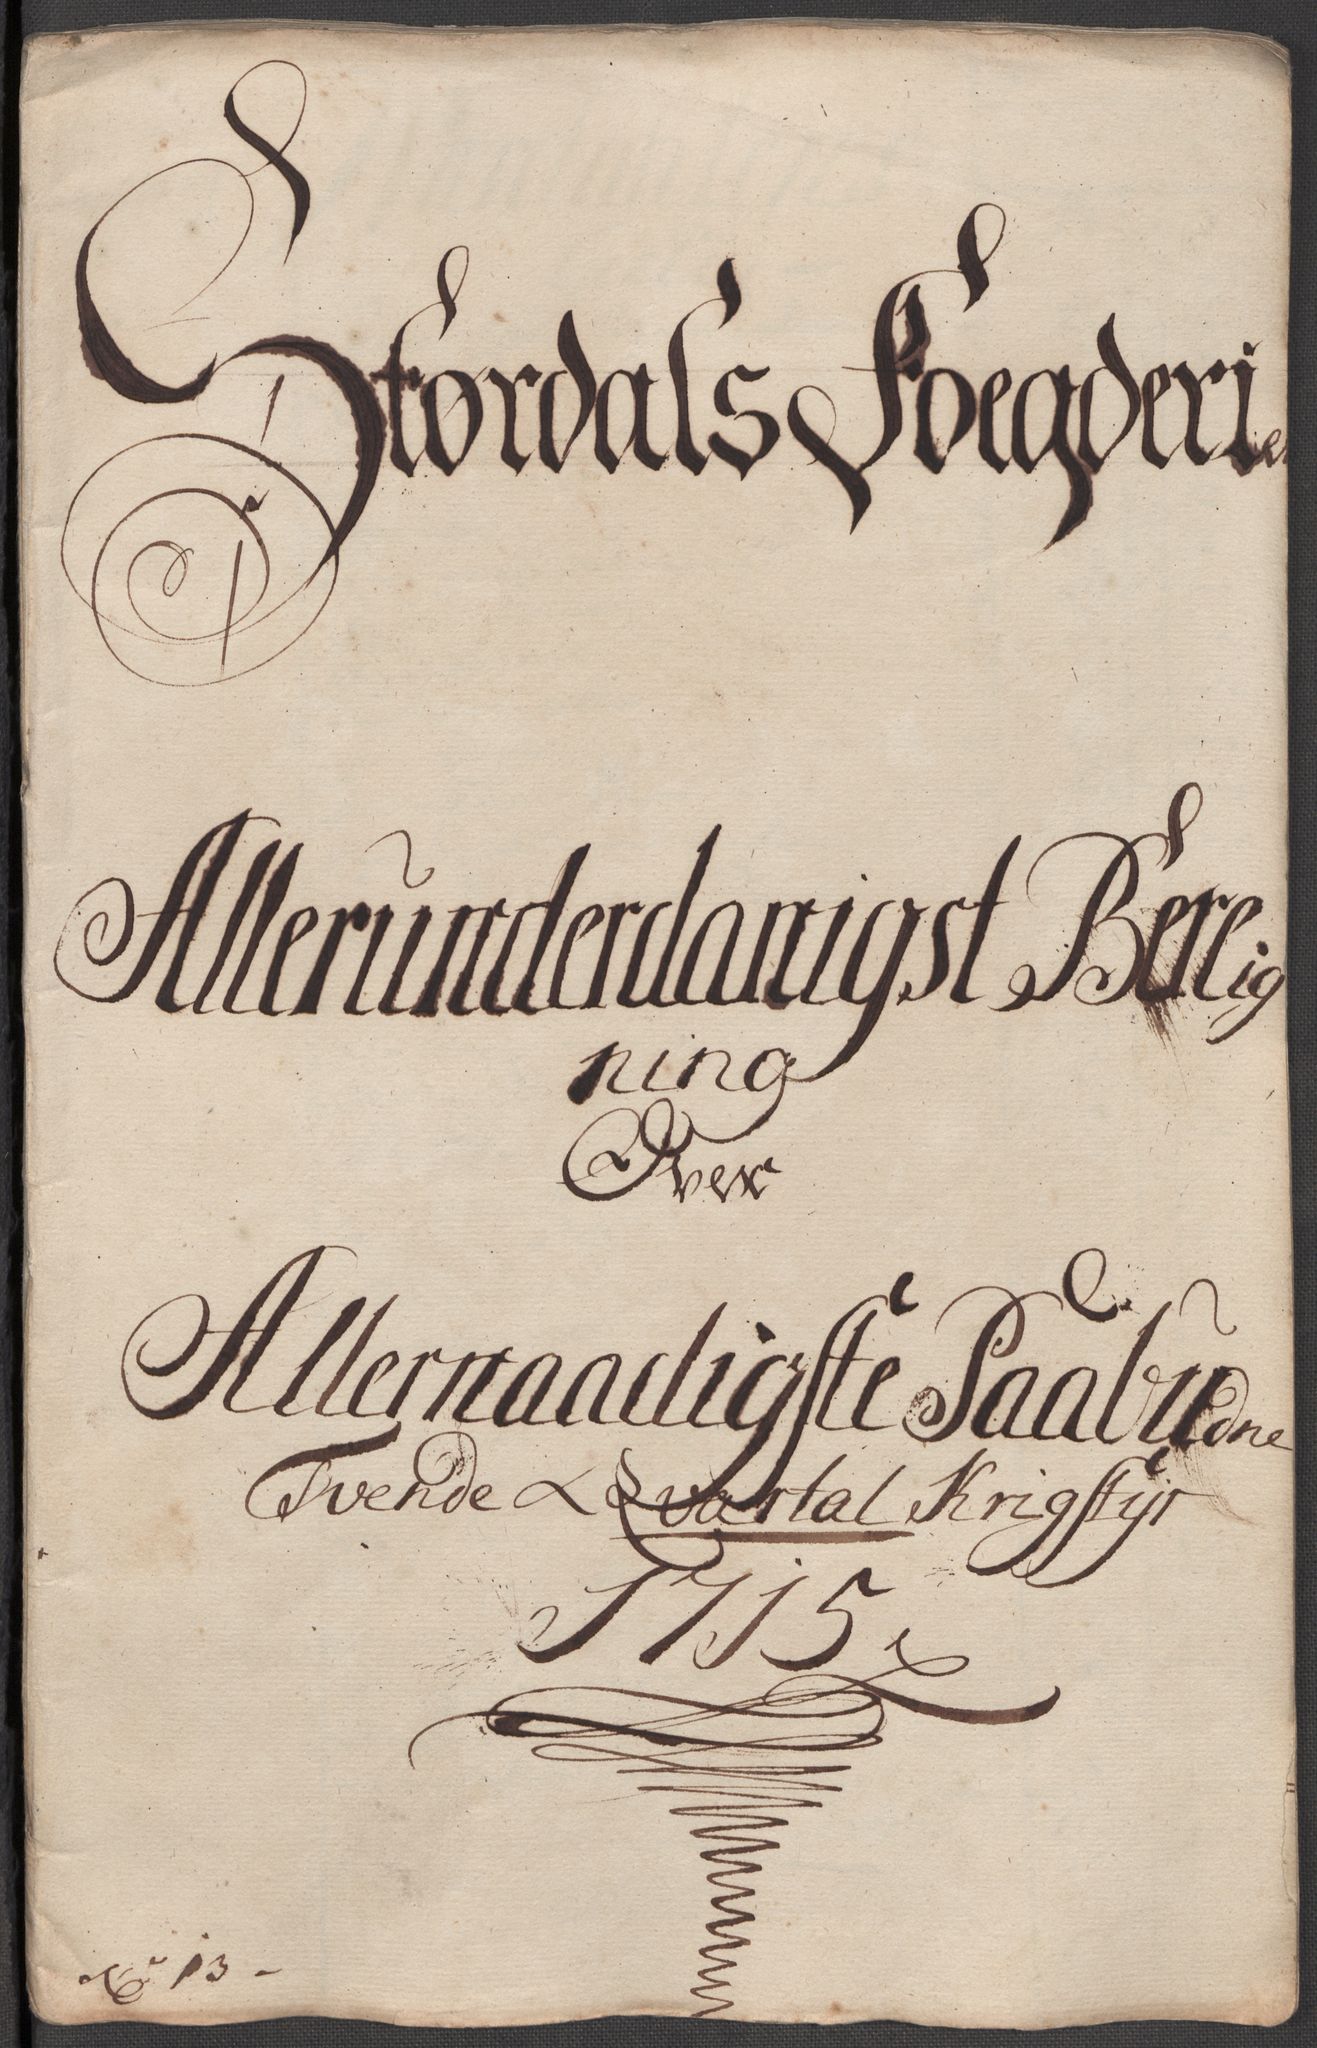 Størdals Foegderi
Allerunderdanigst Bereig
ning
Over
Allernaadigste Paabudne
Tvende Qvartal Krigstyr
1715
No 13